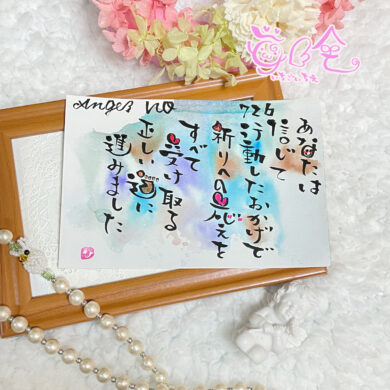 Angel No
726
あなたは
信じて
行動したおかげで
祈りへの応えを
すべて
受け取る
正しい道に
進みました